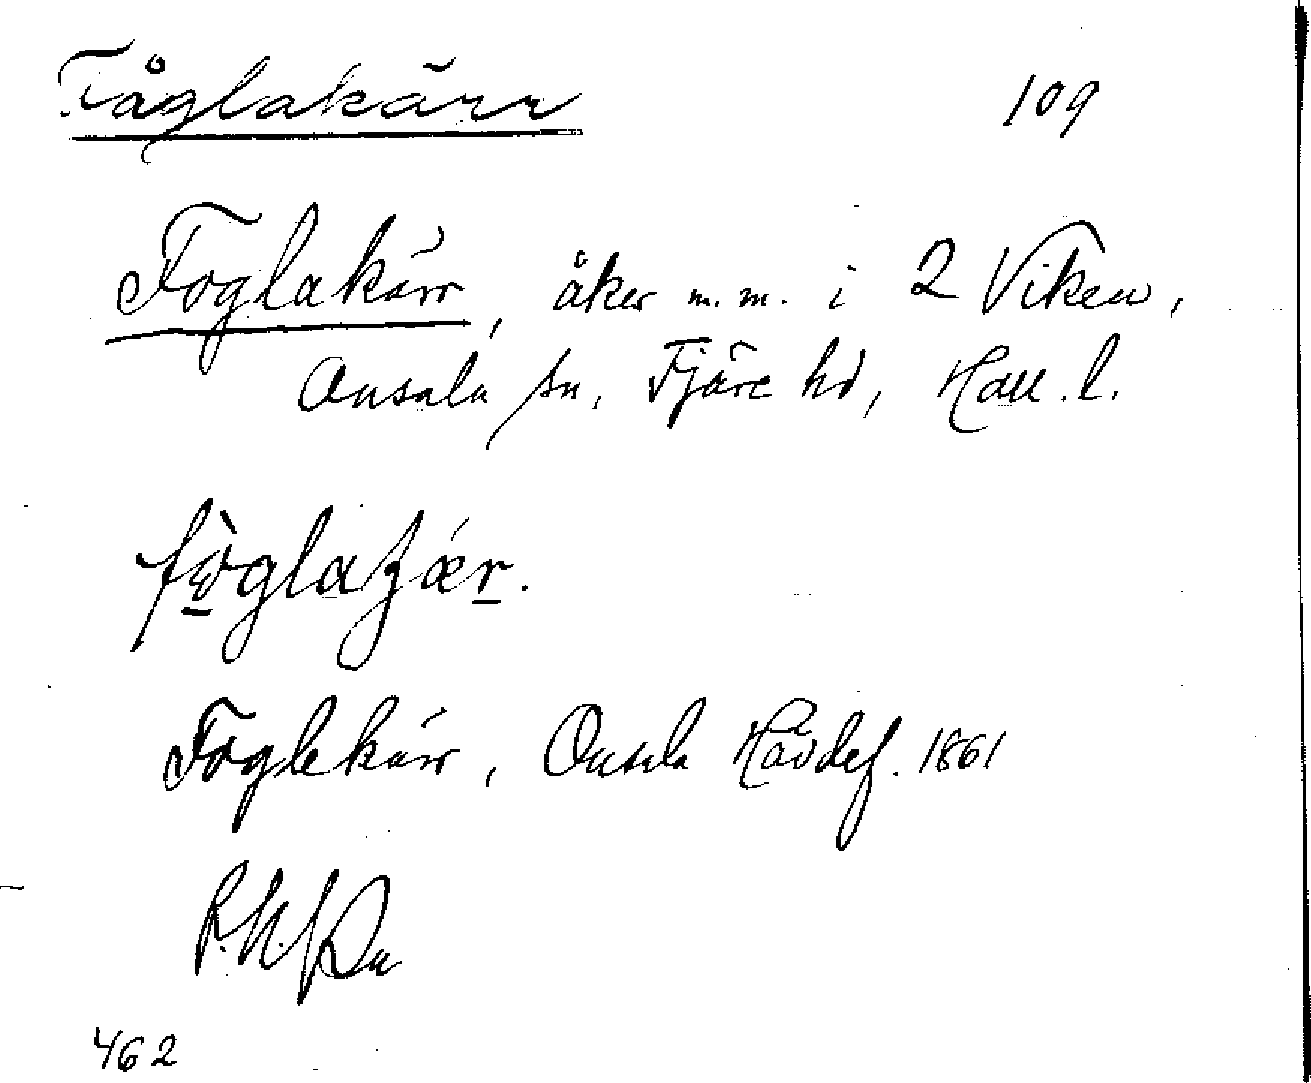 Fåglakärr 109
Foglakärr, åker m.m. i 2 Viken,
Onsala sn, Fjäre hd, Hall. l.
Foglekärr, Onsala Hävdef. 1861
462